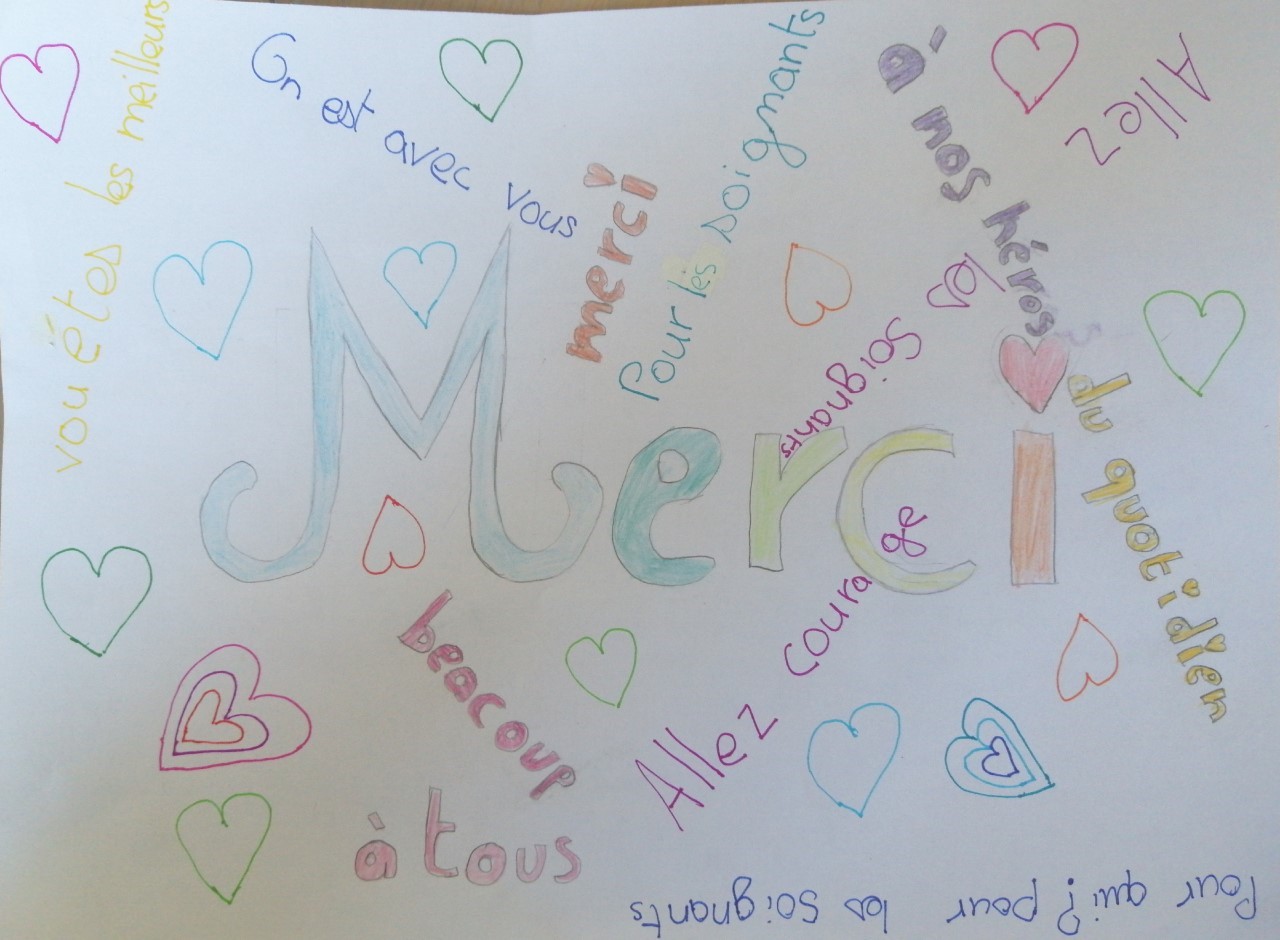 vou étes les meilleurs
On est avec vous
merci
Pour les soignants
à nos héros
du quotidien
Allez
les soignants
Merci
Allez courage
beacoup
à tous
Pour qui? pour les soignants